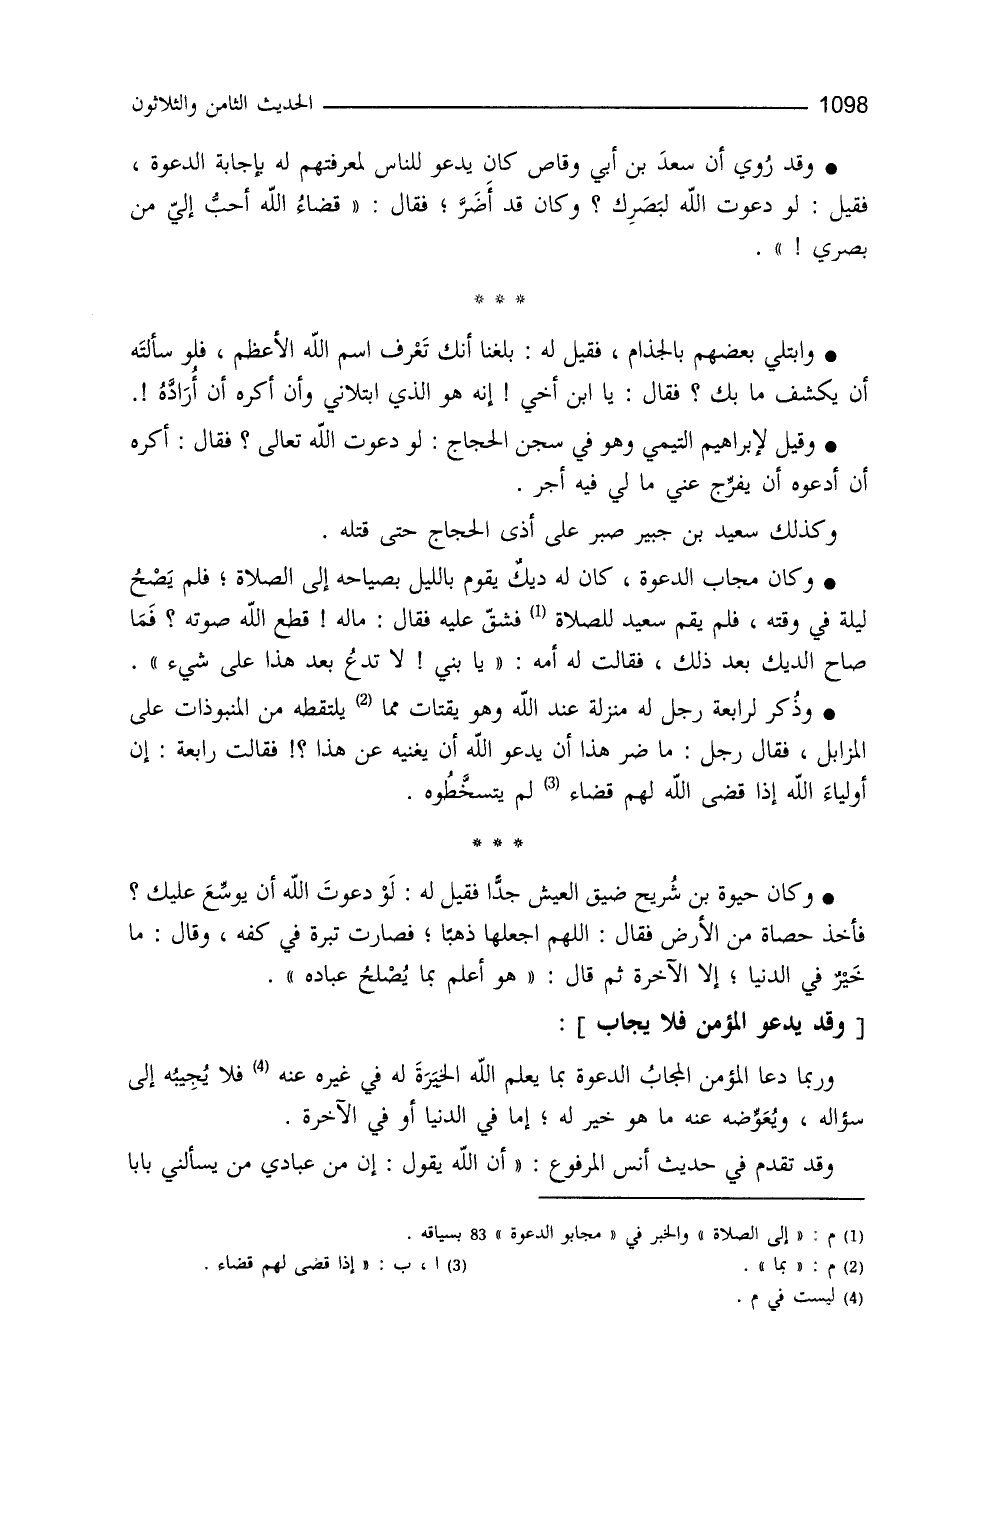 1098 ـــــــــ الحديث الثامن والثلاثون
● وقد رُوي أن سعدَ بن أبي وقاص كان يدعو للناس لمعرفتهم له بإجابة الدعوة ،
فقيل : لو دعوت اللّه لبَصَرِك ؟ وكان قد أَضَرَّ ؛ فقال : « قضاءُ اللّه أحبُّ إليّ من
بصري ! » .
* * *
● وابتلي بعضهم بالجذام ، فقيل له : بلغنا أنك تَعْرف اسم اللّه الأعظم ، فلو سألتَه
أن يكشف ما بك ؟ فقال : يا ابن أخي ! إنه هو الذي ابتلاني وأن أكره أن أُرَادَّهُ !.
● وقيل لإبراهيم التيمي وهو في سجن الحجاج : لو دعوت اللّه تعالى ؟ فقال : أكره
أن أدعوه أن يفرِّج عني ما لي فيه أجر .
وكذلك سعيد بن جبير صبر على أذى الحجاج حتى قتله .
● وكان مجاب الدعوة ، كان له ديكٌ يقوم بالليل بصياحه إلى الصلاة ؛ فلم يَصْحُ
ليلة في وقته ، فلم يقم سعيد للصلاة (1) فشقّ عليه فقال : ماله ! قطع اللّه صوته ؟ فَمَا
صاح الديك بعد ذلك ، فقالت له أمه : « يا بني ! لا تدعُ بعد هذا على شيء » .
● وذُكر لرابعة رجل له منزلة عند اللّه وهو يقتات مما (2) يلتقطه من المنبوذات على
المزابل ، فقال رجل : ما ضر هذا أن يدعو اللّه أن يغنيه عن هذا ؟! فقالت رابعة : إن
أولياءَ اللّه إذا قضى اللّه لهم قضاء (3) لم يتسخَّطُوه .
* * *
● وكان حيوة بن شُريح ضيق العيش جدًّا فقيل له : لَوْ دعوتَ اللّه أن يوسِّعَ عليك ؟
فأخذ حصاة من الأرض فقال : اللهم اجعلها ذهبًا ؛ فصارت تبرة في كفه ، وقال : ما
خَيْرٌ في الدنيا ؛ إلا الآخرة ثم قال : « هو أعلم بما يُصْلحُ عباده » .
[ وقد يدعو المؤمن فلا يجاب ] :
وربما دعا المؤمن المجابُ الدعوة بما يعلم اللّه الخيَرَةَ له في غيره عنه (4) فلا يُجيبُه إلى
سؤاله ، ويُعَوِّضه عنه ما هو خير له ؛ إما في الدنيا أو في الآخرة .
وقد تقدم في حديث أنس المرفوع : « أن اللّه يقول : إن من عبادي من يسألني بابا
(1) م : « إلى الصلاة » والخبر في « مجابو الدعوة » 83 بسياقه .
(2) م : « بما » . (3) ا ، ب : « إذا قضى لهم قضاء .
(4) ليست في م .